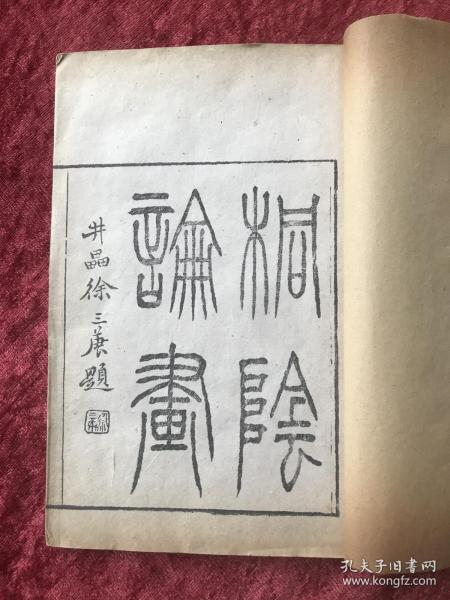 桐陰
論畫
井畾徐三庚題
孔夫子旧书网
www.kongfz.com